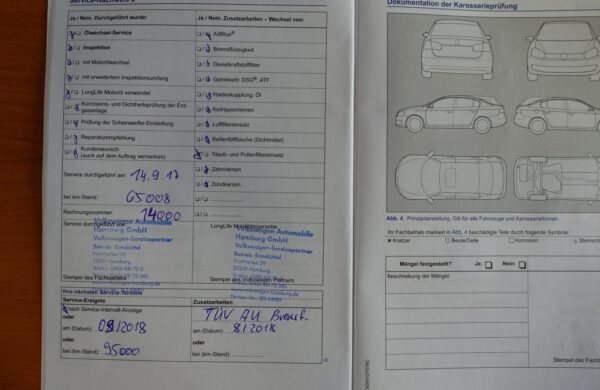 Service-Nachweis 2
Ja / Nein. Durchgeführt wurde:
Ölwechsel-Service
Inspektion
mit Motorölwechsel
mit erweitertem Inspektionsumfang
LongLife Motoröl verwendet
Korrosions- und Dichtheitsprüfung der Entgasanlage
Prüfung der Scheinwerfer-Einstellung
Reparaturempfehlung
Kundenwunsch
(auch auf dem Auftrag vermerken)
Service durchgeführt am: 14.9.17
bei km-Stand: 65008
Rechnungsnummer: 14000
Service durchgeführt von
Volkswagen Automobile
Hamburg GmbH
Volkswagen-Servicepartner
Betrieb Eimsbüttel
20251 Hamburg
Stempel des Fachbetriebs
Ja / Nein. Zusatzarbeiten – Wechsel von:
AdBlue®
Bremsflüssigkeit
Dieselkraftstofffilter
Getriebeöl: DSG®, ATF
Haldexkupplung: Öl
Keilrippenriemen
Luftfiltereinsatz
Reifenfüllflasche (Dichtmittel)
Staub- und Pollenfiltereinsatz
Zahnriemen
Zündkerzen
LongLife Mobilitätsgarantie:
Volkswagen Automobile
Hamburg GmbH
Volkswagen-Servicepartner
Betrieb Eimsbüttel
20251 Hamburg
Stempel des Volkswagen Partners
Ihre nächsten Service-Termine
Service-Ereignis
nach Service-Intervall-Anzeige
oder
am (Datum): 09/2018
oder
bei (km-Stand): 95000
Zusatzarbeiten
TÜV AU Bremsfl.
am (Datum): 8/2018
oder
bei (km-Stand):
Dokumentation der Karosserieprüfung
Abb. 4 Prinzipdarstellung. Gilt für alle Fahrzeuge und Karosserieformen.
Ihr Fachbetrieb markiert in Abb. 4 beschädigte Teile durch folgende Symbole:
Kratzer Beule/Delle Korrosion Steinschl
Mängel festgestellt? Ja: Nein:
Beschreibung der Mängel: